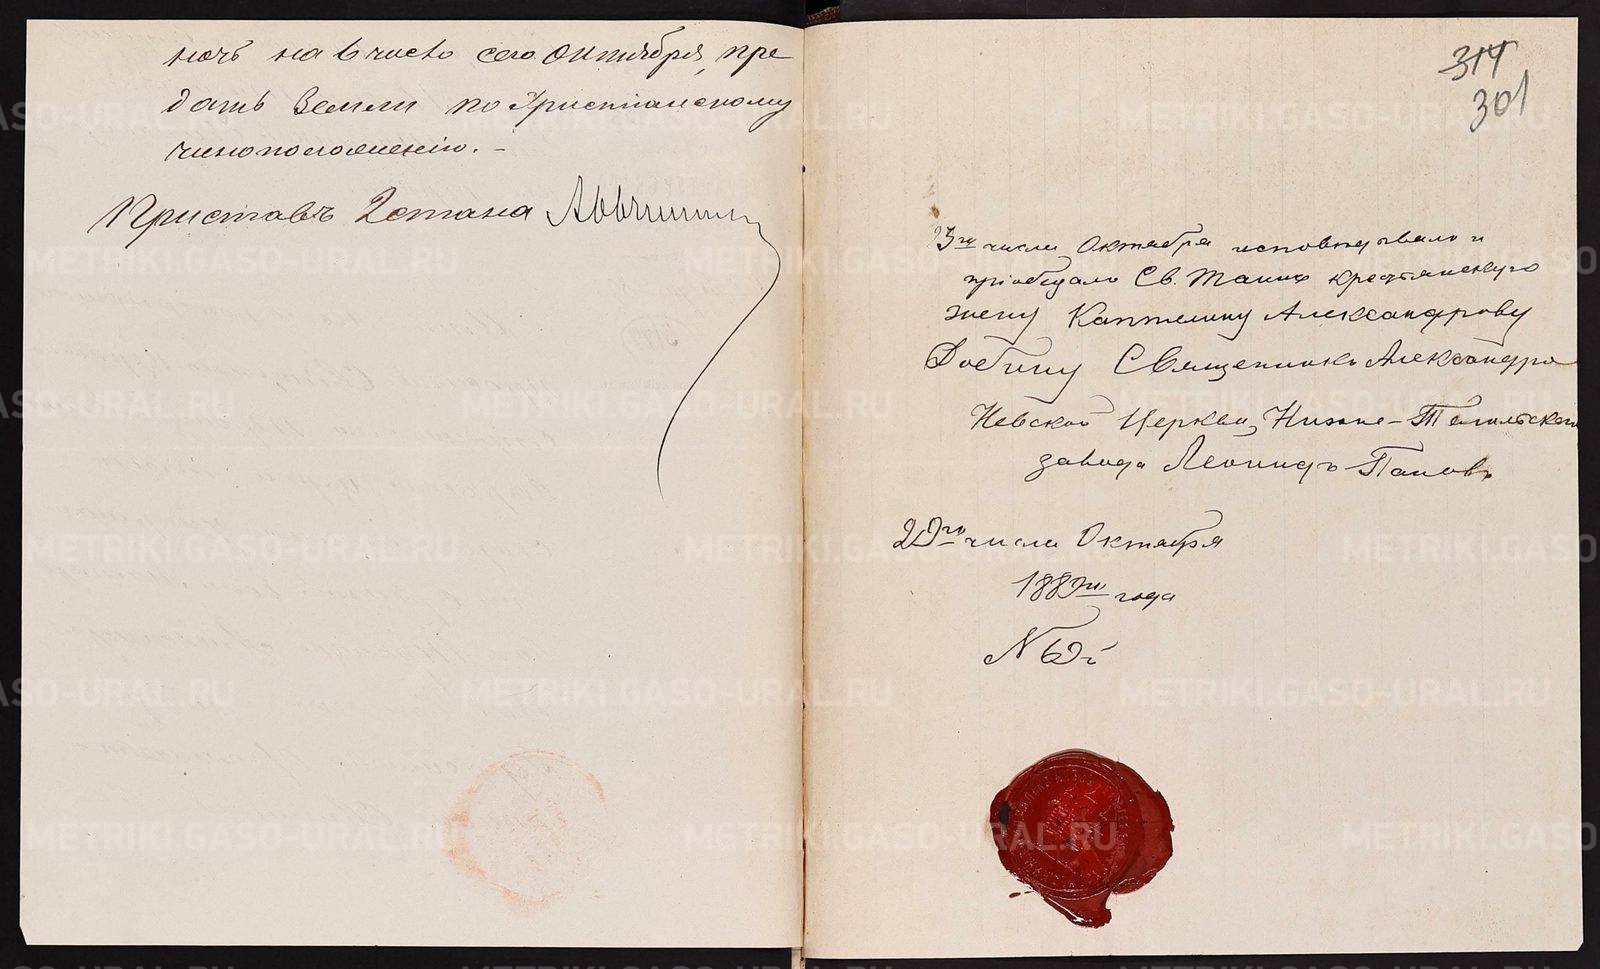 ночь на 6 число сего Октября, пре
дать земли по Христианскому
чиноположению. –
Приставъ 2 стана
314
301
числа Октября исповѣдывалъ и
пріобщалъ Св. Таинъ крестьянскую
жену Капитолину Александрову
Священникъ Александро
Невской Церкви, Нижне-Тагильскаго
завода Леонидъ Поповъ
числа Октября
года
METRIKI.GASO-URAL.RU